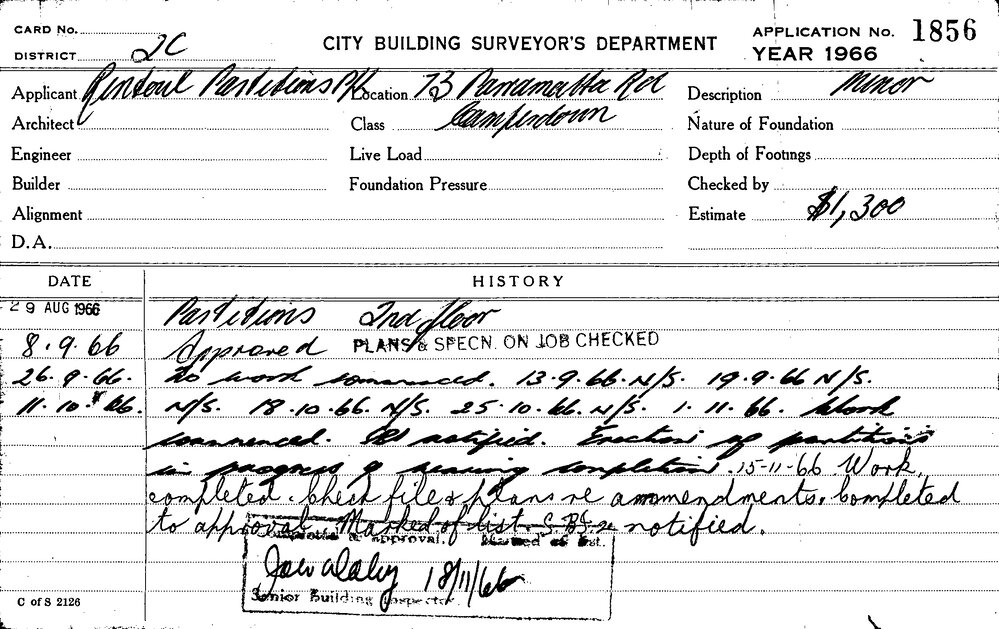 CARD No.
DISTRICT 2C
CITY BUILDING SURVEYOR'S DEPARTMENT
APPLICATION No. 1856
YEAR 1966
Applicant Rintoul Partitions P/L Location 73 Parramatta Rd Description Minor
Architect Class Camperdown Nature of Foundation
Engineer Live Load Depth of Footings
Builder Foundation Pressure Checked by
Alignment Estimate $1,300
D.A.
DATE HISTORY
29 AUG 1966 Partitions 2nd floor
8.9.66 Approved PLANS & SPECN. ON JOB CHECKED
26.9.66. No work commenced. 13.9.66 N/S. 19.9.66 N/S.
11.10.66. N/S. 18.10.66. N/S. 25.10.66. N/S. 1.11.66. Work
commenced. notified. Erection of partitions
in progress & nearing completion. 15-11-66 Work
completed. Check file & plans re ammendments. Completed
to approval. Marked of list. notified.
Completed to approval. Marked of list.
18/11/66
Senior Building Inspector.
C of S 2126